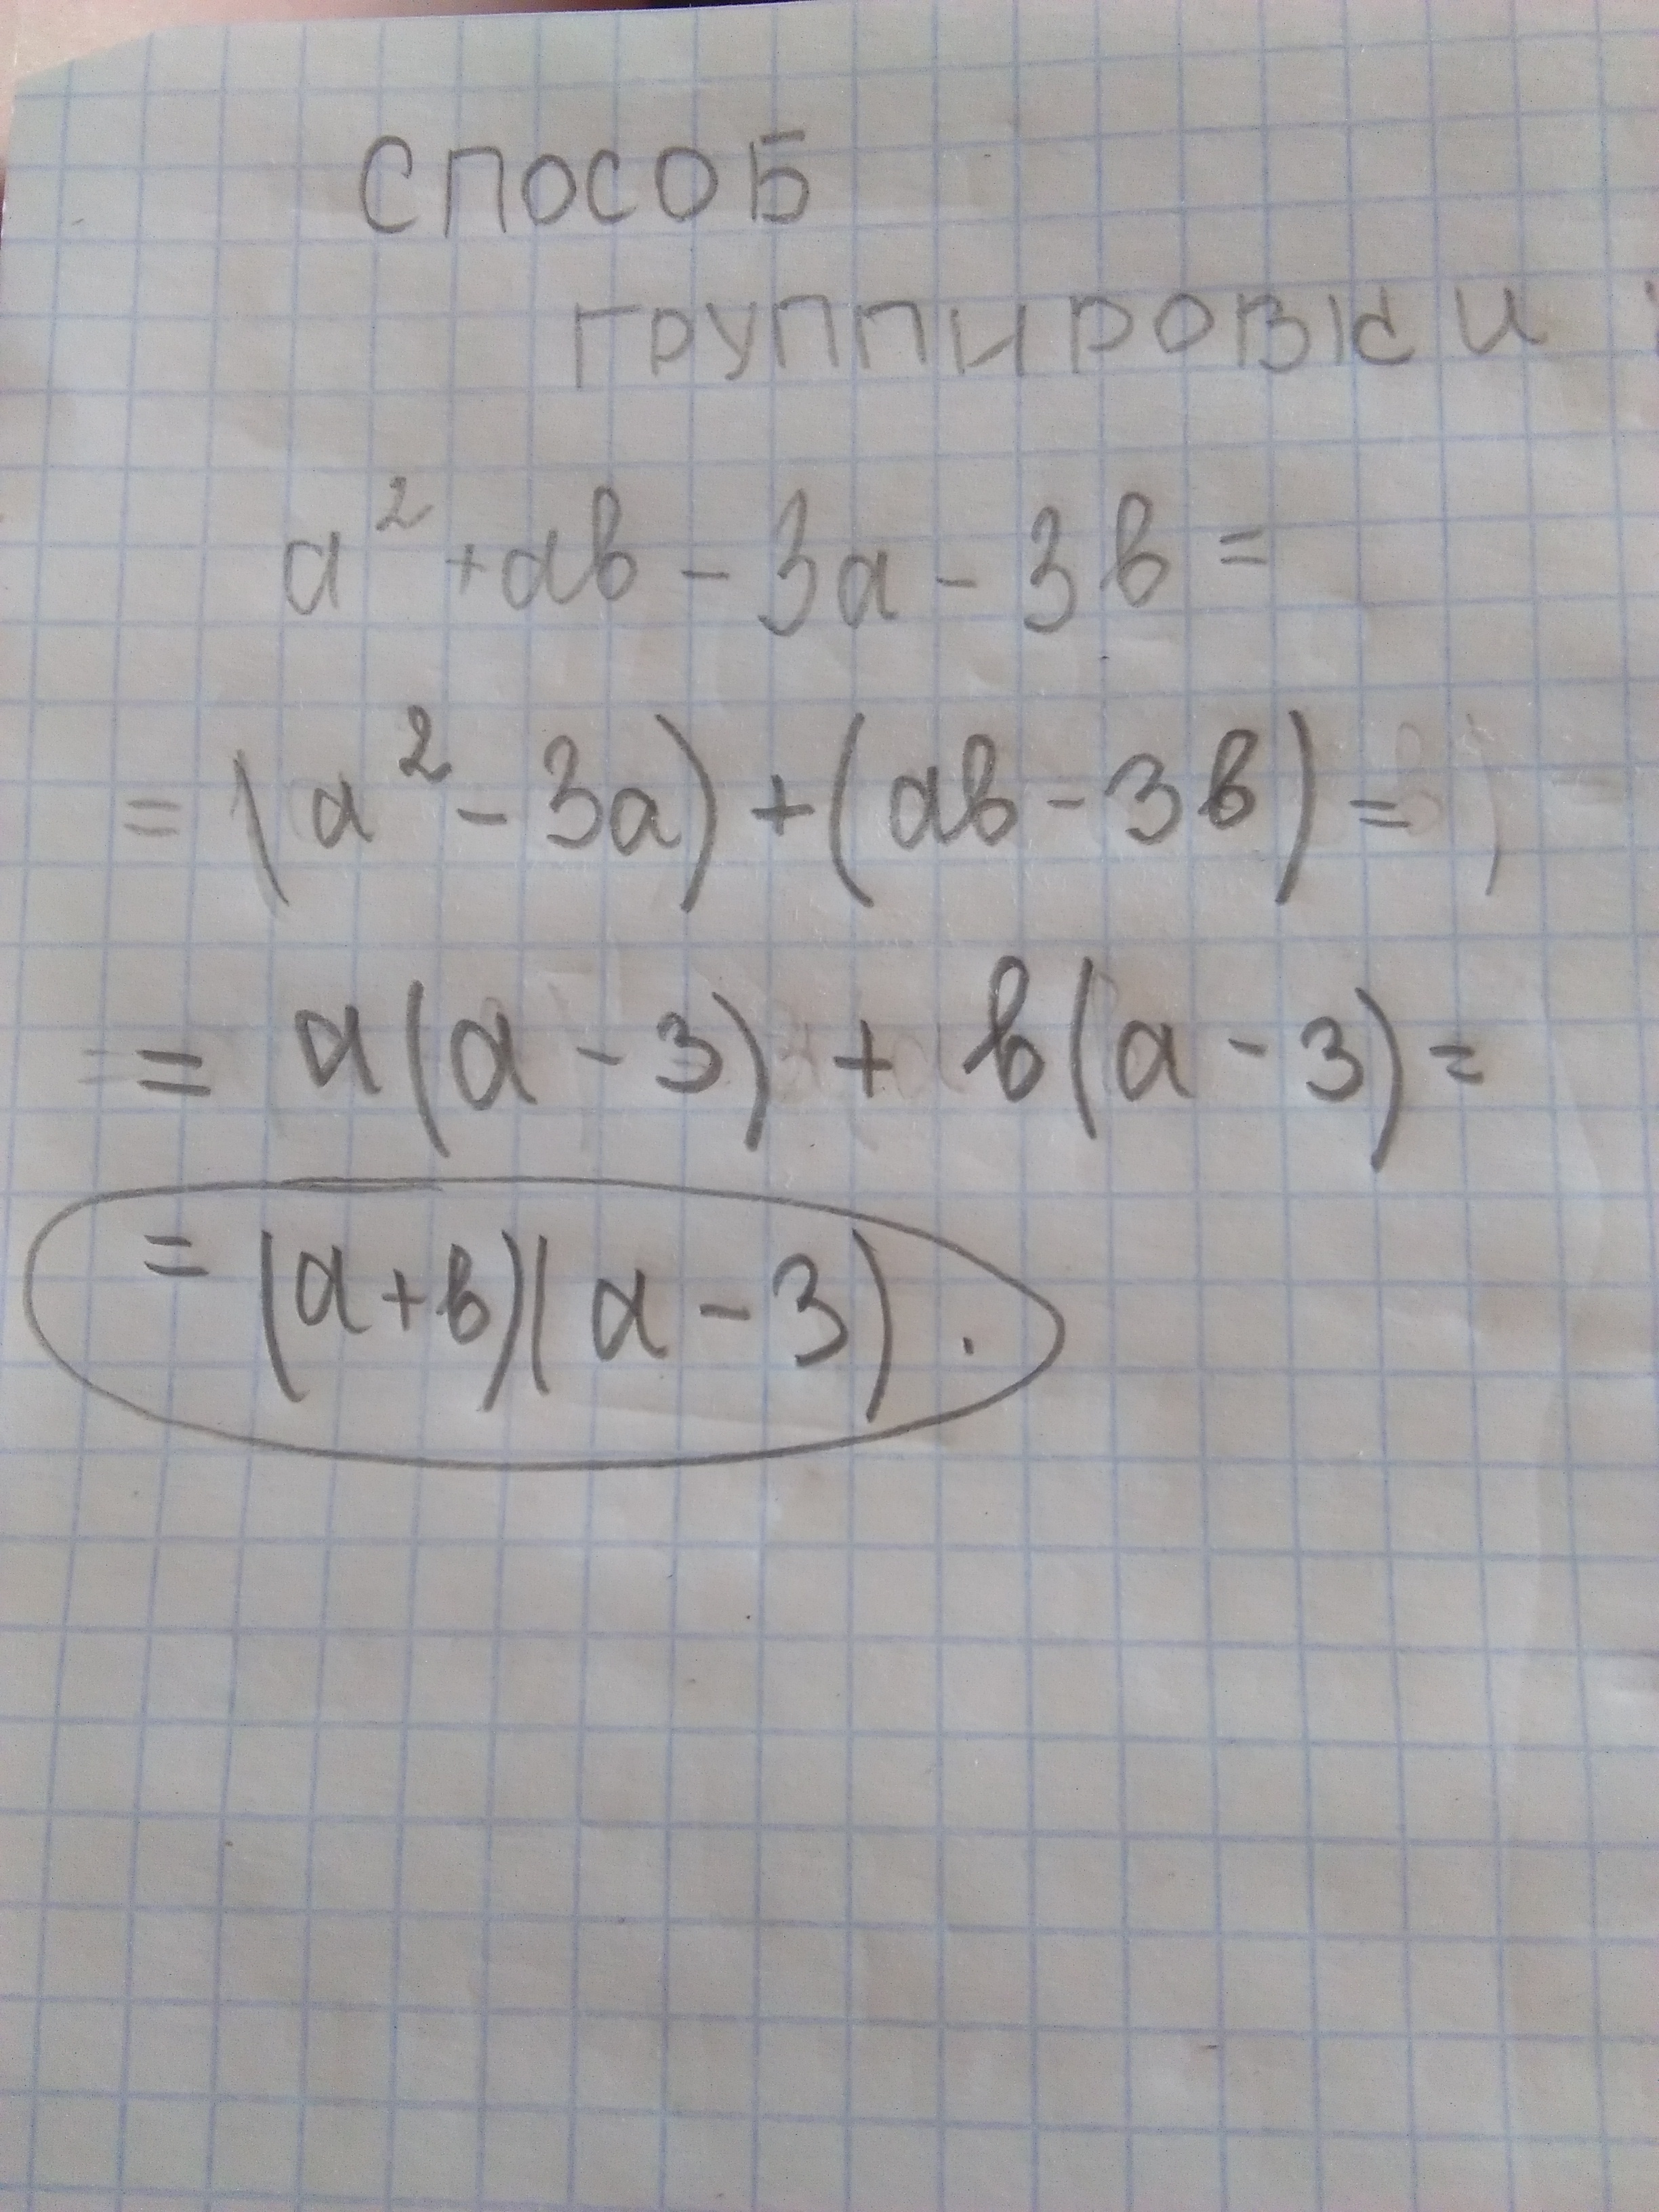 СПОСОБ
ГРУППИРОВКИ
a² + ab - 3a - 3b =
= (a² - 3a) + (ab - 3b) =
= a(a - 3) + b(a - 3) =
= (a + b)(a - 3).